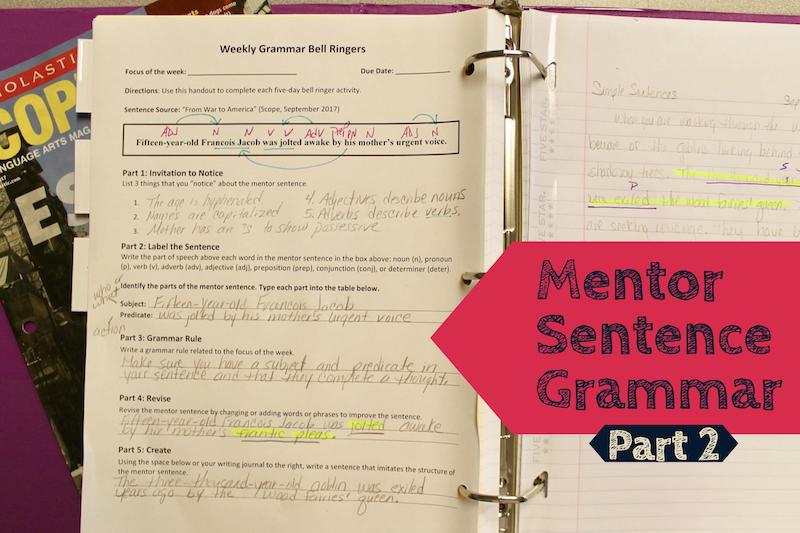 SCHOLASTI
COP
LANGUAGE ARTS MAG
ES
Weekly Grammar Bell Ringers
Focus of the week: Due Date:
Directions: Use this handout to complete each five-day bell ringer activity.
Sentence Source: "From War to America" (Scope, September 2017)
ADJ N N V V ADV PREP PN N ADJ N
Fifteen-year-old Francois Jacob was jolted awake by his mother's urgent voice.
Part 1: Invitation to Notice
List 3 things that you "notice" about the mentor sentence.
1. The age is hyphenated 4. Adjectives describe nouns
2. Names are capitalized 5. Adverbs describe verbs.
3. Mother has an 's to show possessive
Part 2: Label the Sentence
Write the part of speech above each word in the mentor sentence in the box above: noun (n), pronoun
(p), verb (v), adverb (adv), adjective (adj), preposition (prep), conjunction (conj), or determiner (deter).
Identify the parts of the mentor sentence. Type each part into the table below.
who or
what
Subject: Fifteen-year-old Francois Jacob
Predicate: was jolted by his mother's urgent voice
action
Part 3: Grammar Rule
Write a grammar rule related to the focus of the week.
Make sure you have a subject and predicate in
your sentence and that they complete a thought.
Part4: Revise
Revise the mentor sentence by changing or adding words or phrases to improve the sentence.
Fifteen-year-old Francois Jacob was jolted awake
by his mother's frantic pleas.
Part 5: Create
Using the space below or your writing journal to the right, write a sentence that imitates the structure of
the mentor sentence.
The three-thousand-year-old goblin was exiled
years ago by the wood fairies' queen.
Simple Sentences Sep
When you are walking through the w
beware of the goblins lurking behind
shadowy trees.
S
P
was exiled the wood fairies' queen.
are seeking revenge. They have b
FIVE STAR.
FIVE STAR.
Mentor
Sentence
Grammar
Part 2